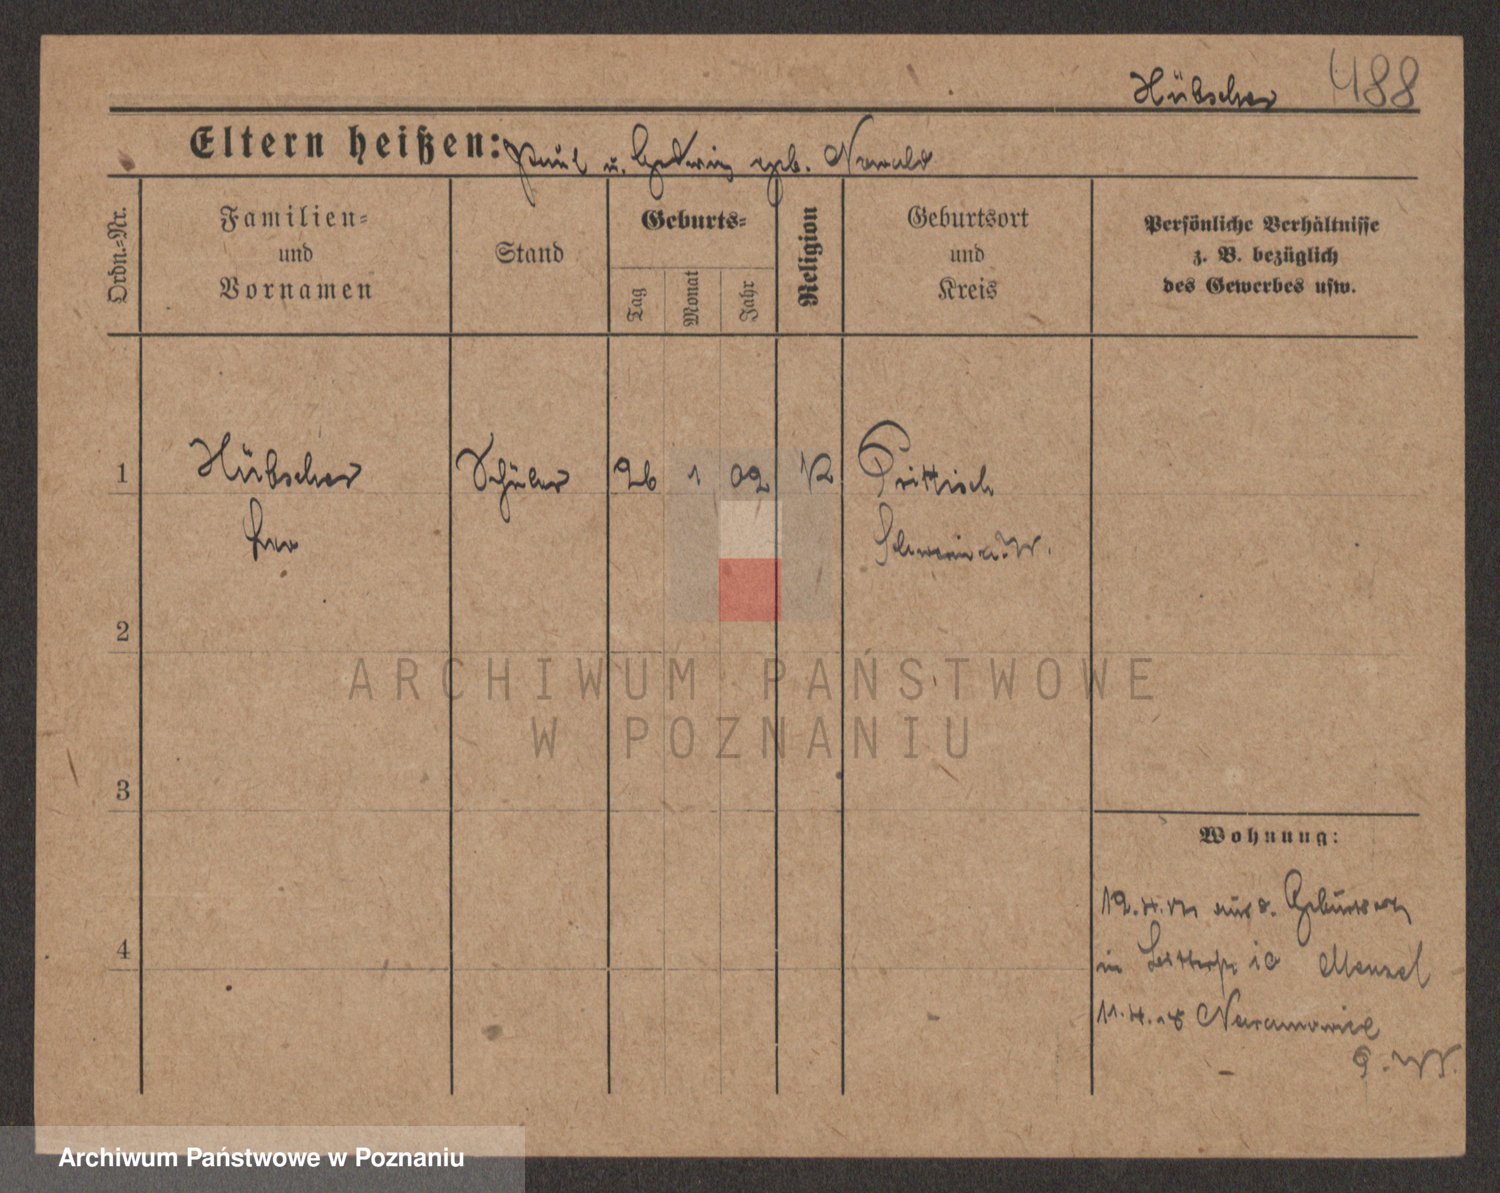 Hübscher 488
Eltern heißen: Paul u. Hedwig geb. Nowald
Ordn.-Nr.
Familien-
und
Vornamen
Stand
Geburts-
Tag
Monat
Jahr
Religion
Geburtsort
und
Kreis
Persönliche Verhältnisse
z. B. bezüglich
des Gewerbes usw.
1 Hübscher Schüler 26 1 02 K Prittisch
Leo Schwerin a. W.
2
3
4
Wohnung:
aus d. Geburtsort
in 10 Menzel
11.4.18 Naramowice
ARCHIWUM PAŃSTWOWE
W POZNANIU
Archiwum Państwowe w Poznaniu